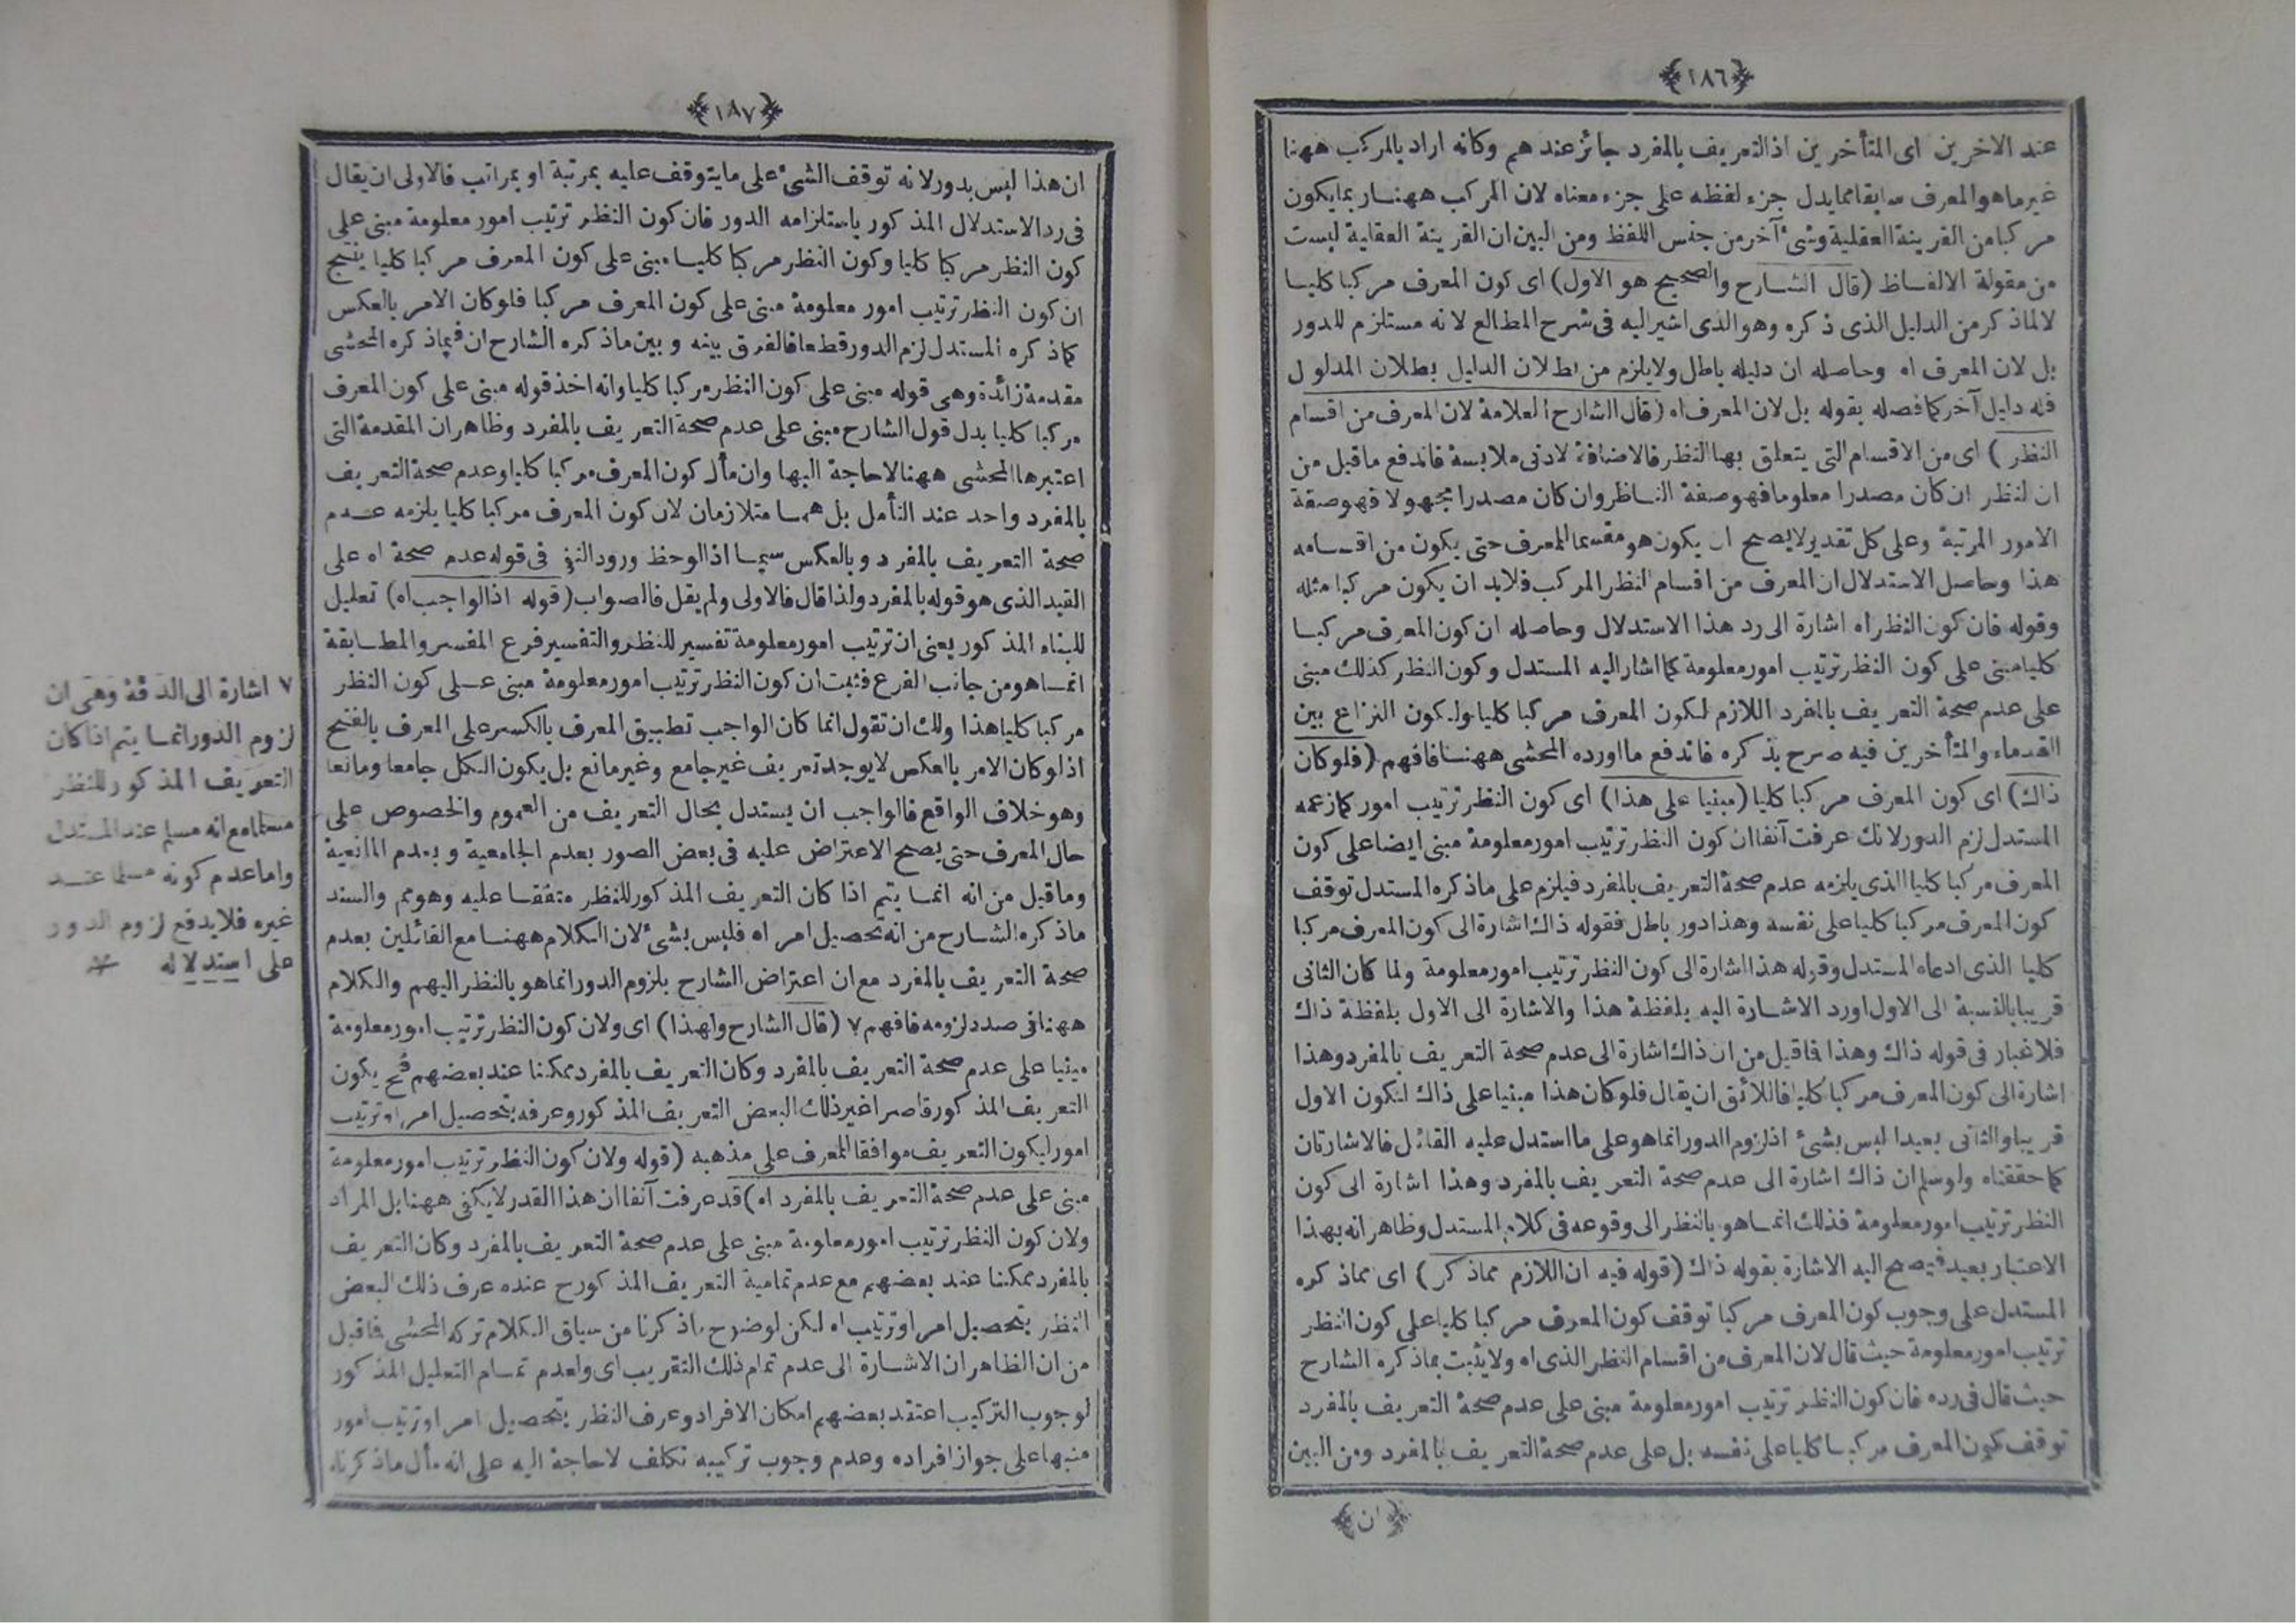 ﴿١٨٦﴾
عند الاخرين اى المتأخرين اذ التعريف بالمفرد جائز عندهم وكانه اراد بالمركب ههنا
غير ما هو المعرف سابقا مما يدل جزء لفظه على جزء معناه لان المركب ههنا ربما يكون
مركبا من القرينة العقلية وشئ آخر من جنس اللفظ ومن البين ان القرينة العقلية ليست
من مقولة الالفاظ (قال الشارح والصحيح هو الاول) اى كون المعرف مركبا كليا
لا لما ذكر من الدليل الذى ذكره وهو الذى اشير اليه فى شرح المطالع لانه مستلزم للدور
بل لان المعرف اه وحاصله ان دليله باطل ولا يلزم من بطلان الدليل بطلان المدلول
فله دليل آخر كما فصله بقوله بل لان المعرف اه (قال الشارح العلامة لان المعرف من اقسام
النظر) اى من الاقسام التى يتعلق بها النظر فالاضافة لادنى ملابسة فاندفع ما قيل من
ان النظر ان كان مصدرا معلوما فهو صفة الناظر وان كان مصدرا مجهولا فهو صفة
الامور المرتبة وعلى كل تقدير لا يصح ان يكون هو مقسما للمعرف حتى يكون من اقسامه
هذا وحاصل الاستدلال ان المعرف من اقسام النظر المركب فلابد ان يكون مركبا مثله
وقوله فان كون النظر اه اشارة الى رد هذا الاستدلال وحاصله ان كون المعرف مركبا
كليا مبنى على كون النظر ترتيب امور معلومة كما اشار اليه المستدل وكون النظر كذلك مبنى
على عدم صحة التعريف بالمفرد اللازم لكون المعرف مركبا كليا وليكون النزاع بين
القدماء والمتأخرين فيه صرح بذكره فاندفع ما اورده المحشى ههنا فافهم (فلو كان
ذاك) اى كون المعرف مركبا كليا (مبنيا على هذا) اى كون النظر ترتيب امور كما زعمه
المستدل لزم الدور لانك عرفت آنفا ان كون النظر ترتيب امور معلومة مبنى ايضا على كون
المعرف مركبا كليا الذى يلزمه عدم صحة التعريف بالمفرد فيلزم على ما ذكره المستدل توقف
كون المعرف مركبا كليا على نفسه وهذا دور باطل فقوله ذاك اشارة الى كون المعرف مركبا
كليا الذى ادعاه المستدل وقوله هذا اشارة الى كون النظر ترتيب امور معلومة ولما كان الثانى
قريبا بالنسبة الى الاول اورد الاشارة اليه بلفظة هذا والاشارة الى الاول بلفظة ذاك
فلا غبار فى قوله ذاك وهذا فاقيل من ان ذاك اشارة الى عدم صحة التعريف بالمفرد وهذا
اشارة الى كون المعرف مركبا كليا فاللائق ان يقال فلو كان هذا مبنيا على ذاك لكون الاول
قريبا والثانى بعيدا ليس بشئ اذ لزوم الدور انما هو على ما استدل عليه القائل فالاشارتان
كما حققناه ولو سلم ان ذاك اشارة الى عدم صحة التعريف بالمفرد وهذا اشارة الى كون
النظر ترتيب امور معلومة فذلك انما هو بالنظر الى وقوعه فى كلام المستدل وظاهر انه بهذا
الاعتبار بعيد فيصح اليه الاشارة بقوله ذاك (قوله فيه ان اللازم مما ذكر) اى مما ذكره
المستدل على وجوب كون المعرف مركبا توقف كون المعرف مركبا كليا على كون النظر
ترتيب امور معلومة حيث قال لان المعرف من اقسام النظر الذى اه ولا يثبت بما ذكره الشارح
حيث قال فى رده فان كون النظر ترتيب امور معلومة مبنى على عدم صحة التعريف بالمفرد
توقف كون المعرف مركبا كليا على نفسه بل على عدم صحة التعريف بالمفرد ومن البين
﴿ان﴾
﴿١٨٧﴾
ان هذا ليس بدور لانه توقف الشئ على ما يتوقف عليه بمرتبة او بمراتب فالاولى ان يقال
فى رد الاستدلال المذكور باستلزامه الدور فان كون النظر ترتيب امور معلومة مبنى على
كون النظر مركبا كليا وكون النظر مركبا كليا مبنى على كون المعرف مركبا كليا ينتج
ان كون النظر ترتيب امور معلومة مبنى على كون المعرف مركبا فلو كان الامر بالعكس
كما ذكره المستدل لزم الدور قطعا فالفرق بينه وبين ما ذكره الشارح ان فيما ذكره المحشى
مقدمة زائدة وهى قوله مبنى على كون النظر مركبا كليا وانه اخذ قوله مبنى على كون المعرف
مركبا كليا بدل قول الشارح مبنى على عدم صحة التعريف بالمفرد وظاهر ان المقدمة التى
اعتبرها المحشى ههنا لا حاجة اليها وان مأل كون المعرف مركبا كليا وعدم صحة التعريف
بالمفرد واحد عند التأمل بل هما متلازمان لان كون المعرف مركبا كليا يلزمه عدم
صحة التعريف بالمفرد وبالعكس سيما اذا لوحظ ورود النفى فى قوله عدم صحة اه على
القيد الذى هو قوله بالمفرد ولذا قال فالاولى ولم يقل فالصواب (قوله اذ الواجب اه) تعليل
للبناء المذكور يعنى ان ترتيب امور معلومة تفسير للنظر والتفسير فرع المفسر والمطابقة
انما هو من جانب الفرع فثبت ان كون النظر ترتيب امور معلومة مبنى على كون النظر
مركبا كليا هذا ولك ان تقول انما كان الواجب تطبيق المعرف بالكسر على المعرف بالفتح
اذ لو كان الامر بالعكس لا يوجد تعريف غير جامع وغير مانع بل يكون الكل جامعا ومانعا
وهو خلاف الواقع فالواجب ان يستدل بحال التعريف من العموم والخصوص على
حال المعرف حتى يصح الاعتراض عليه فى بعض الصور بعدم الجامعية وبعدم المانعية
وما قيل من انه انما يتم اذا كان التعريف المذكور للنظر متفقا عليه وهو مم والسند
ما ذكره الشارح من انه تحصيل امر اه فليس بشئ لان الكلام ههنا مع القائلين بعدم
صحة التعريف بالمفرد مع ان اعتراض الشارح بلزوم الدور انما هو بالنظر اليهم والكلام
ههنا فى صدد لزومه فافهم ٧ (قال الشارح ولهذا) اى ولان كون النظر ترتيب امور معلومة
مبنيا على عدم صحة التعريف بالمفرد وكان التعريف بالمفرد ممكنا عند بعضهم فح يكون
التعريف المذكور قاصرا غير ذلك البعض التعريف المذكور وعرفه بتحصيل امر او ترتيب
امور ليكون التعريف موافقا للمعرف على مذهبه (قوله ولان كون النظر ترتيب امور معلومة
مبنى على عدم صحة التعريف بالمفرد اه) قد عرفت آنفا ان هذا القدر لا يكفى ههنا بل المراد
ولان كون النظر ترتيب امور معلومة مبنى على عدم صحة التعريف بالمفرد وكان التعريف
بالمفرد ممكنا عند بعضهم مع عدم تمامية التعريف المذكور ح عنده عرف ذلك البعض
النظر بتحصيل امر او ترتيب اه لكن لوضوح ما ذكرنا من سياق الكلام تركه المحشى فاقيل
من ان الظاهر ان الاشارة الى عدم تمام ذلك التقريب اى ولعدم تمام التعليل المذكور
لوجوب التركيب اعتقد بعضهم امكان الافراد وعرف النظر بتحصيل امر او ترتيب امور
منبها على جواز افراده وعدم وجوب تركيبه تكلف لا حاجة اليه على انه مأل ما ذكرنا
٧ اشارة الى الدقة وهى ان
لزوم الدور انما يتم اذا كان
التعريف المذكور للنظر
مسلما مع انه مسلم عند المستدل
واما عدم كونه مسلما عند
غيره فلا يدفع لزوم الدور
على استدلاله